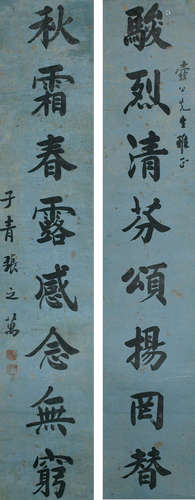 駿烈清芬頌揚罔替
壼公先生雅正
秋霜春露感念無窮
子青張之萬